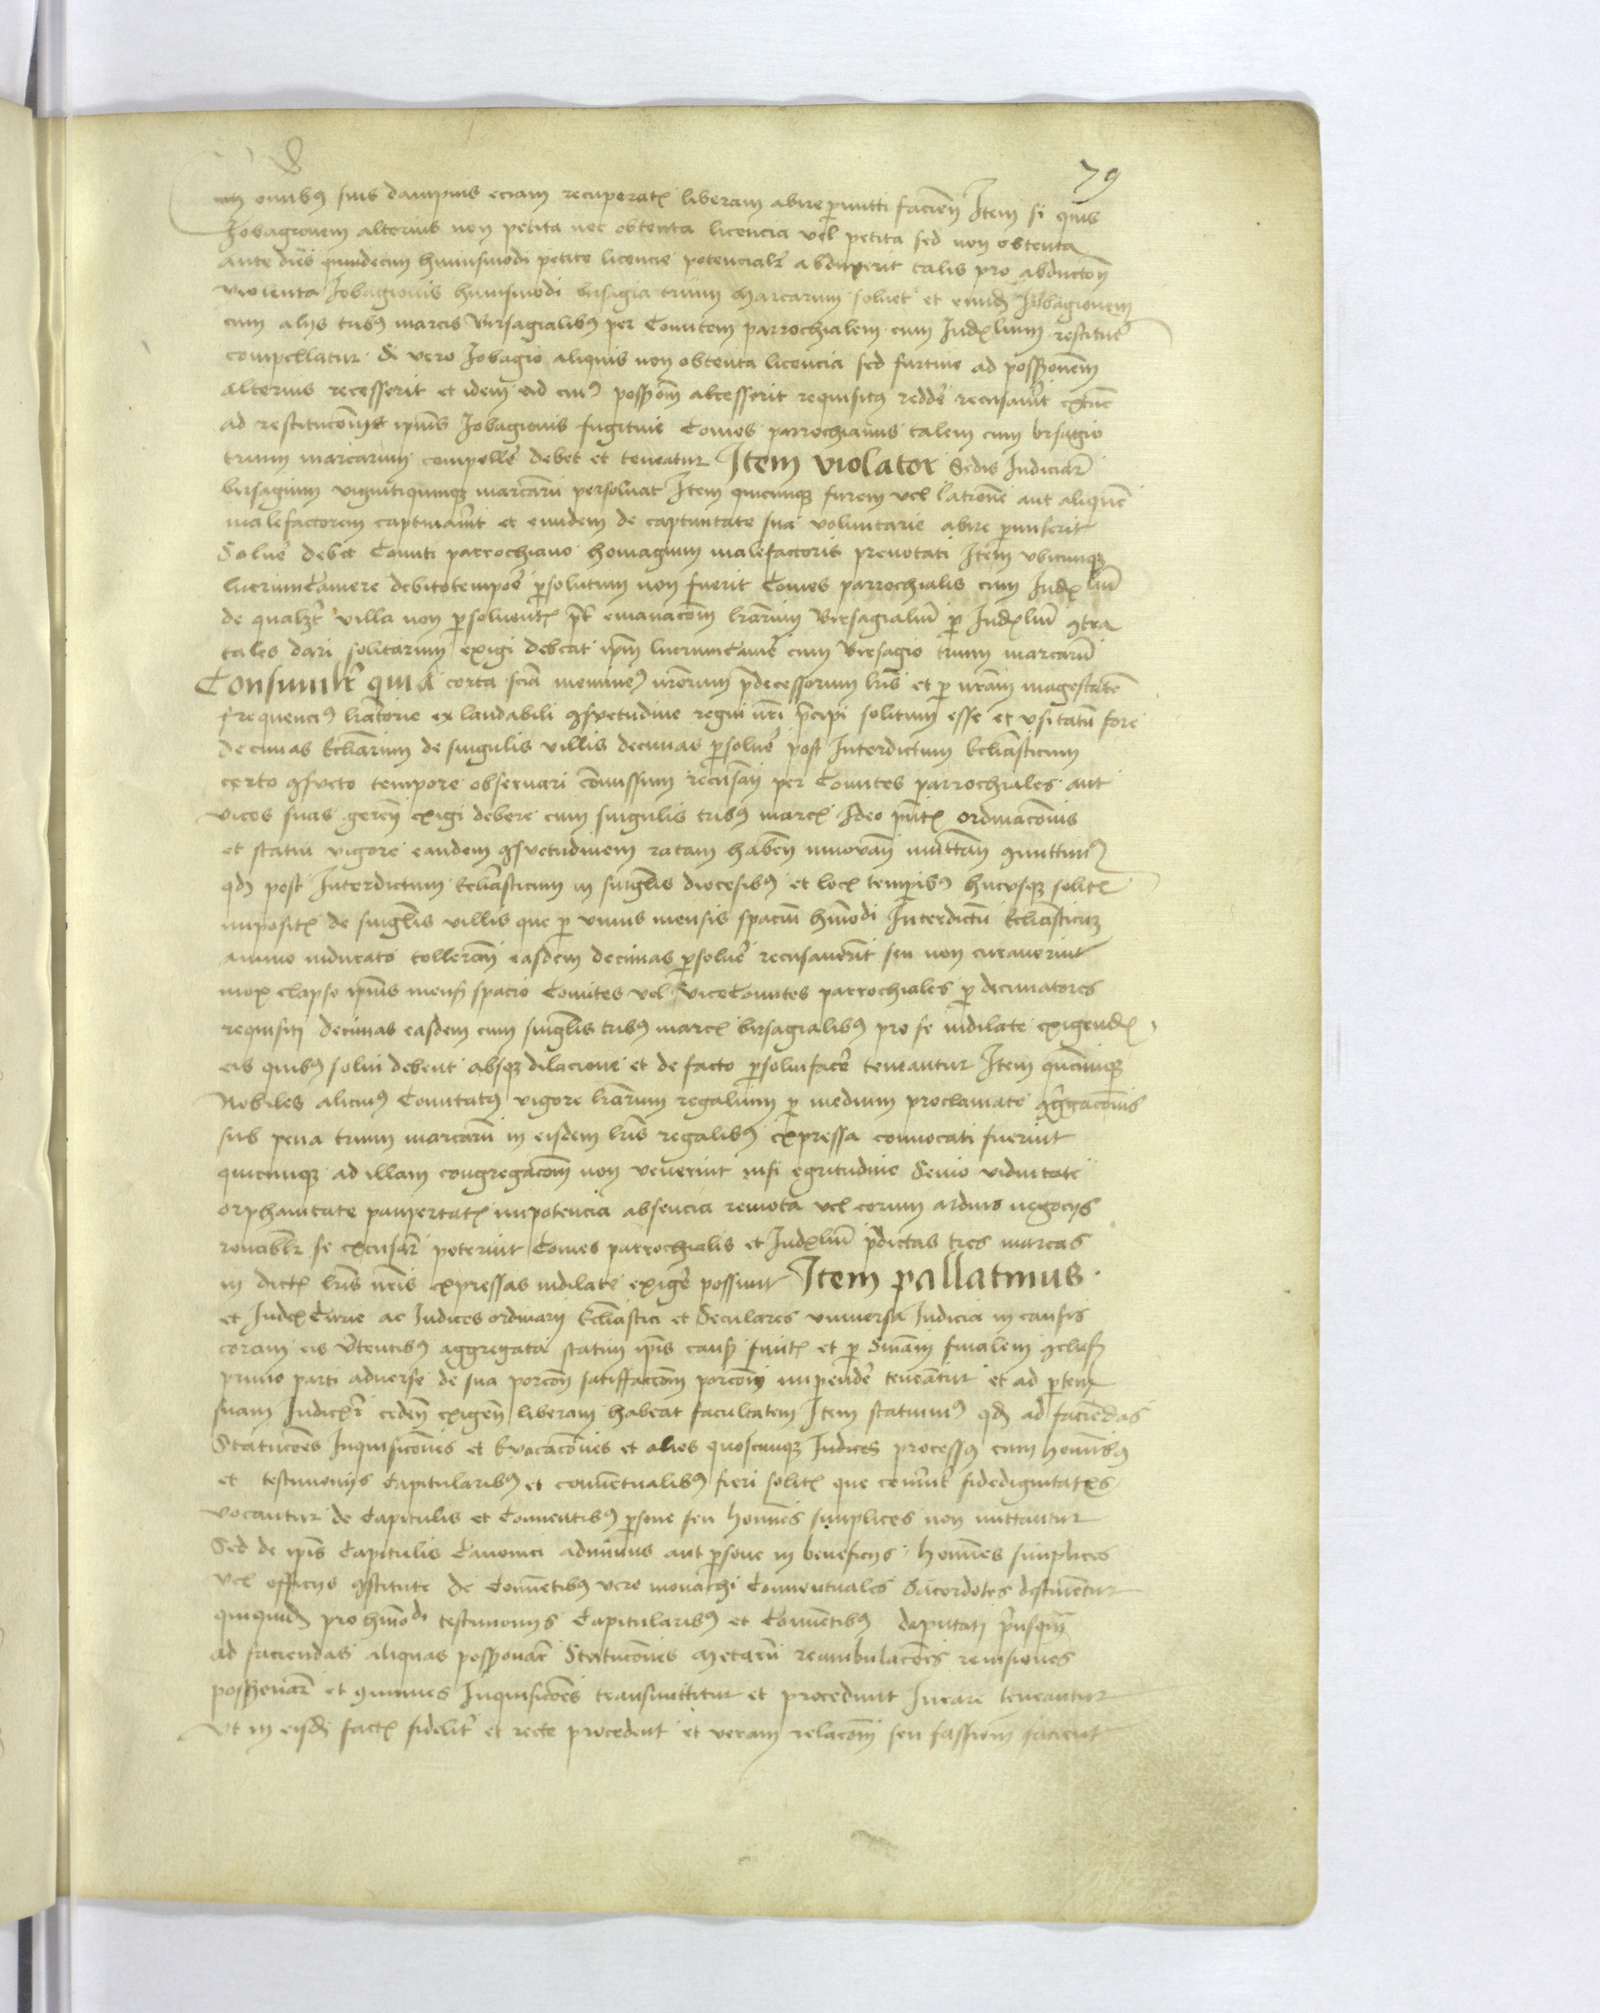 79
cum omnibus suis dampnis eciam recuperatis liberam abire permitti facien Item si quis
Jobagionem alterius non petita nec obtenta licencia vel petita sed non obtenta
ante dies quindecim huiusmodi petite licencie potencialr abduxerit talis pro abduccoe
violenta Jobagionis huiusmodi birsagia trium Marcarum soluet et eundem Jobagionem
cum alijs tribus marcis Birsagialibus per Comitem parrochialem cum Judlium restituere
compellatur Si vero Jobagio aliquis non obtenta licencia sed furtive ad possessionem
alterius recesserit et idem ad cuius possom abcesserit requisitus reddere recusaverit extunc
ad restitucoem ipius Jobagionis fugitivi Comes parrochianus talem cum birsagio
trium marcarum compellere debet et teneatur Item violator Sedis Judiciar
birsagium vigintiquinque marcarum persoluat Item quicunque furem vel latronem aut aliquem
malefactorem captivaverit et eundem de captivitate sua voluntarie abire permiserit
Solvere debet Comiti parrochiano homagium malefactoris prenotati Item ubicunque
lucrum camere debito tempore persolutum non fuerit Comes parrochialis cum Judlium
de qualibet villa non persoluentis pretextu emanacom lrarum Birsagialium per Judlium contra
tales dari solitarum exigi debeat ipm lucrum camere cum Birsagio trium marcarum
Consimilr quia certa scia meminimus nrorum predecessorum lris et per nram magestatem
frequencius lratorie ex laudabili consuetudine regni nri percipi solitum esse et usitatum fore
decimas Ecliarum de singulis villis decimas persolvere post Interdictum Ecliasticum
certo consueto tempore observari commissum recusan per Comites parrochiales aut
vices suas geren exigi debere cum singulis tribus marcis Ideo pntis ordinacois
et statuti vigore eandem consuetudinem ratam haben innovan inmittan committimus
quod post Interdictum Ecliasticum in singulis diocesibus et locis temporibus hucusque solitis
impositis de singulis villis que per unius mensis spacium hmodi Interdictum Ecliasticum
animo indurato tolleran easdem decimas persolvere recusaverint seu non curaverint
mox elapso ipius mensis spacio Comites vel Vicecomites parrochiales per decimatores
requisiti decimas easdem cum singulis tribus marcis birsagialibus pro se indilate exigendis
eis quibus solui debent absque dilacione et de facto persolui facere teneantur Item quicunque
Nobiles alicuius Comitatus vigore lrarum regalium per medium proclamate congregacois
sub pena trium marcarum in eisdem lris regalibus expressa convocati fuerint
quicunque ad illam congregacom non venerint nisi egritudine Senio viduitate
orphanitate paupertatis impotencia absencia remota vel eorum arduis negocijs
ronabilr se excusare poterint Comes parrochialis et Judlium predictas tres marcas
in dictis lris nris expressas indilate exigere possint Item pallatinus
et Judex Curie ac Judices ordinarij Ecliastici et Seculares universa Judicia in causis
coram eis vertentibus aggregata statim ipis causis finitis et per Suiam finalem conclusis
primo parti adverse de sua porcoe satisfaccom porcom impendere teneantur et ad partem
suam Judiciar ceden exigen liberam habeat facultatem Item statuimus quod ad faciendas
Statucoes Inquisicoes et Evocacoes et alios quoscunque Judices processus cum hominibus
et testimonijs Capitularibus et conventualibus fieri solitis que fidedignitates
vocantur de Capitulis et Conventibus persone seu homines simplices non mittantur
Sed de ipis Capitulis Canonici adminus aut persone in beneficijs homines simplices
vel officijs constitute de Conventibus vero monachi Conventuales Sacerdotes destinentur
quiquidem pro hmodi testimonijs Capitularibus et Conventibus deputati priusquam
ad faciendas aliquas possessionar Statucoes Metarum reambulacoes revisiones
possessionar et communes Inquisicoes transmittitur et procedunt Jurare teneantur
Ut in eisdem factis fideliter et recte procedent et veram relacom seu fassionem facient